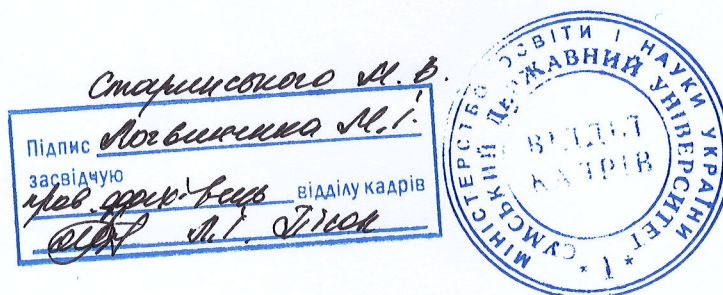 Старинського М. В.
Підпис Логвиненка М.І.
засвідчую
пров. фахівець відділу кадрів
Л.І. Пісок
МІНІСТЕРСТВО ОСВІТИ І НАУКИ УКРАЇНИ
СУМСЬКИЙ ДЕРЖАВНИЙ УНІВЕРСИТЕТ
* 1 *
ВІДДІЛ
КАДРІВ